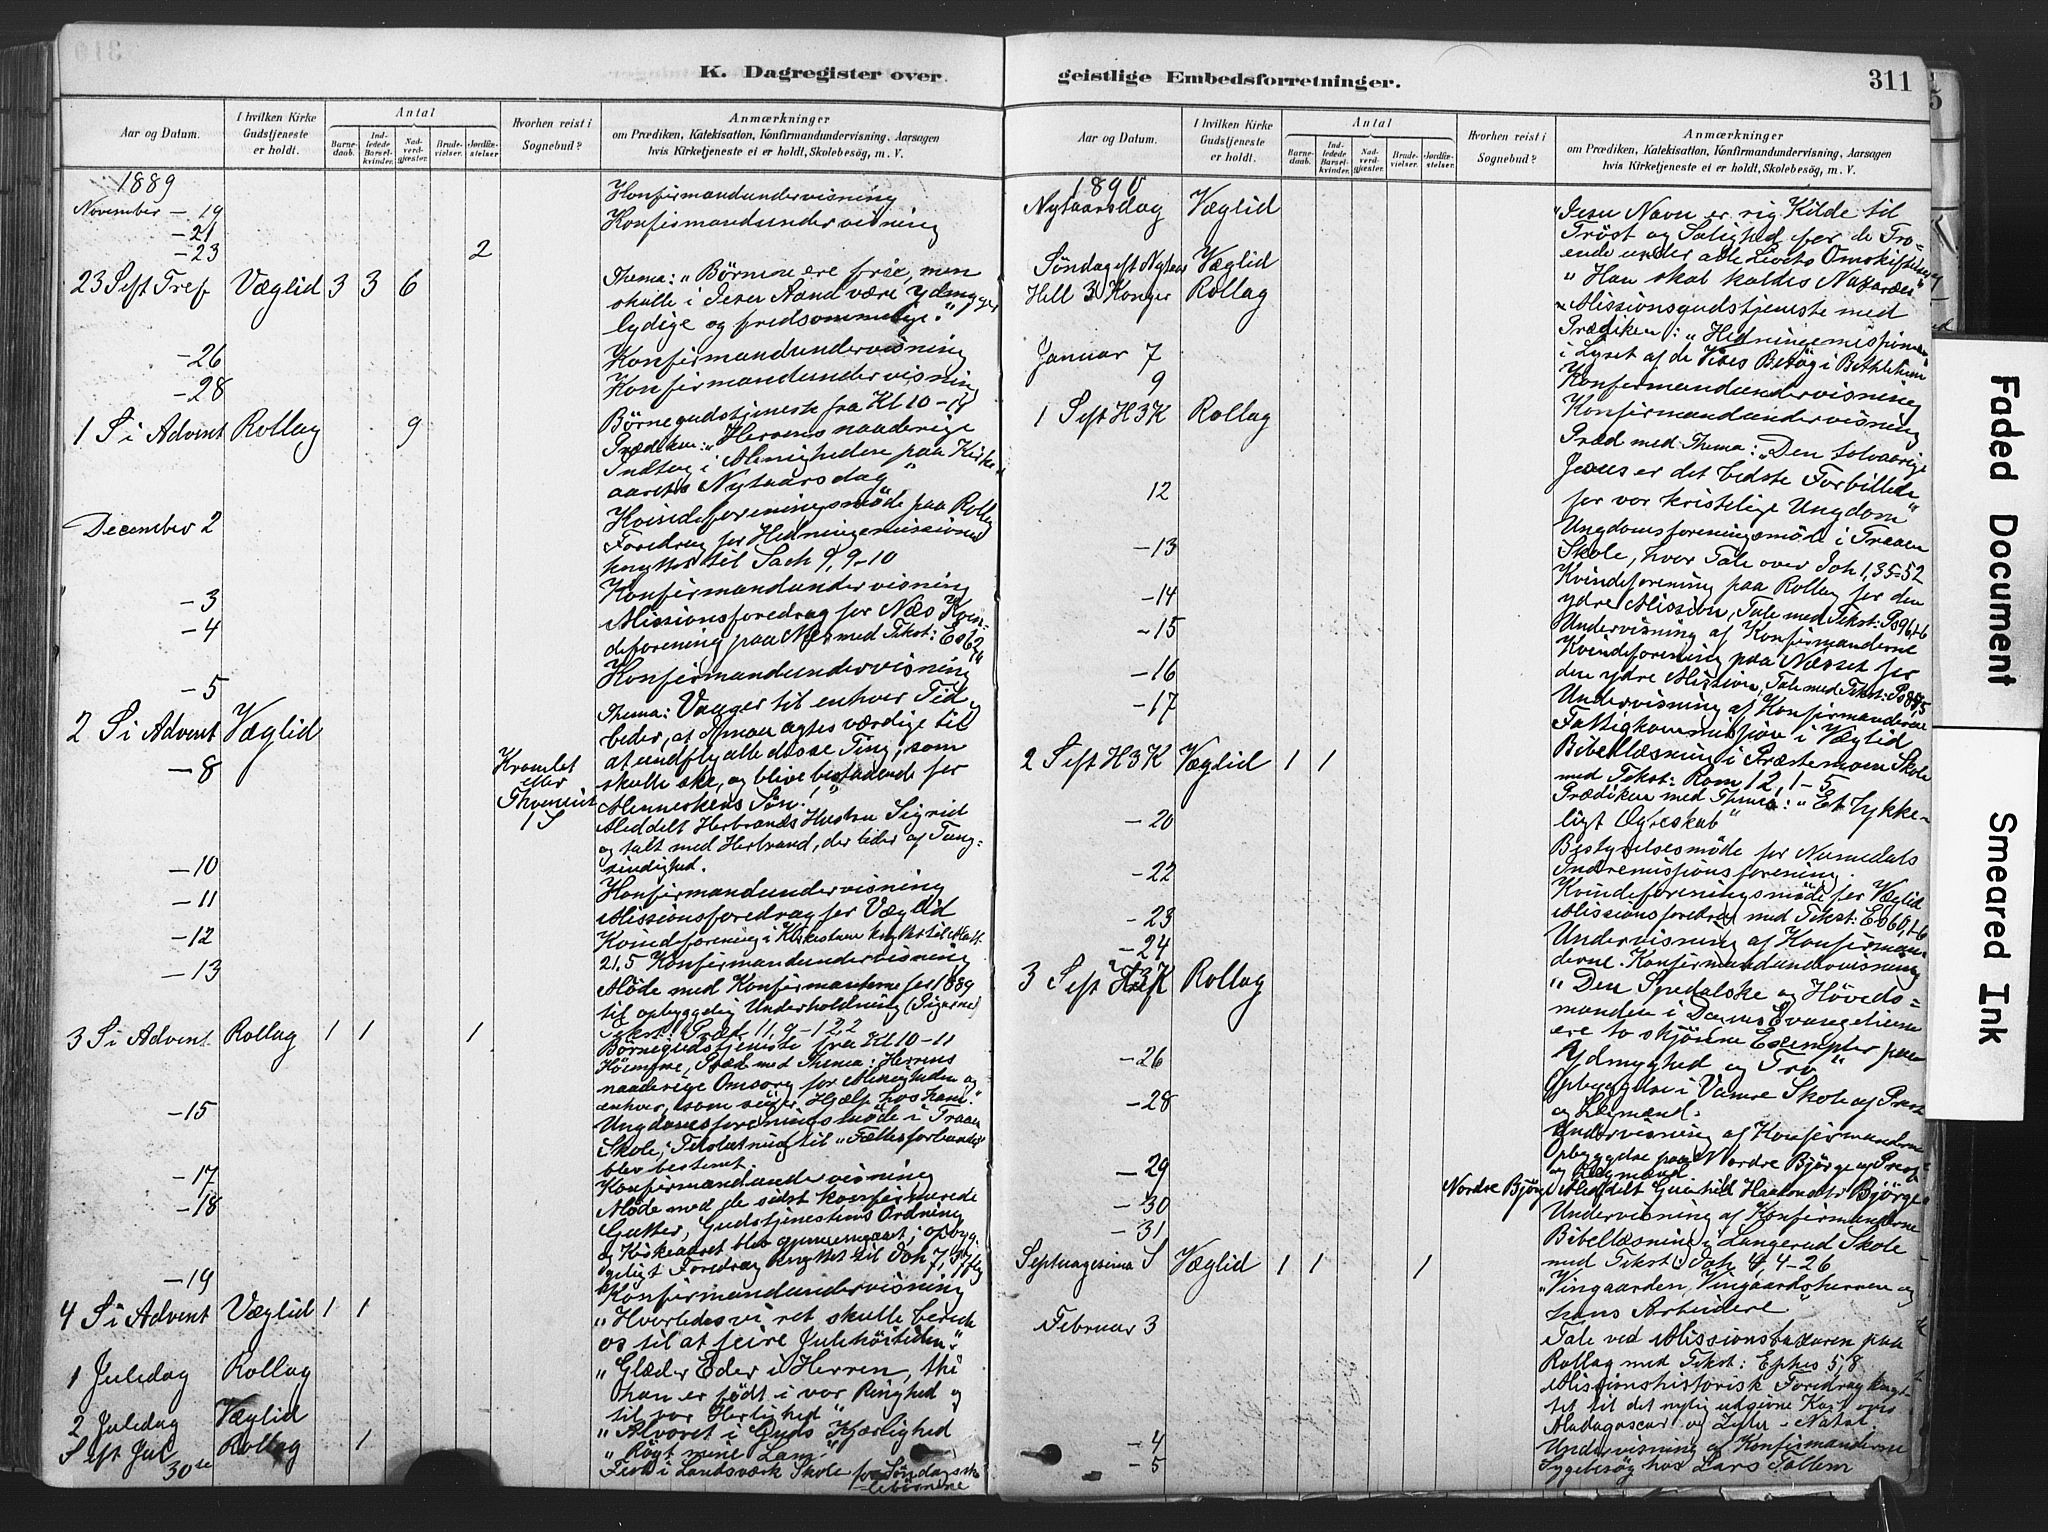 K. Dagregister over
Aar og Datum.
I hvilken Kirke Gudstjeneste er holdt.
Antal
Barnedaab.
Indledede Barselkvinder.
Nadverdgjester.
Brudevielser.
Jordfæstelser
Hvorhen reist i Sognebud?
Anmærkninger
om Prædiken, Katekisation, Konfirmandundervisning, Aarsagen
hvis Kirketjeneste ei er holdt, Skolebesøg, m. V.
1889
November – 19 Konfirmandundervisning
– 21 Konfirmandundervisning
– 23 2
23 S eft Tref Væglid 3 3 6 Thema: „Børnene ere frie, men
skulle i Jesu Aand være ydmyge,
lydige og fredsommelige."
– 26 Konfirmandundervisning
– 28 Konfirmandundervisning
1 S i Advent Rollag 9 Børnegudstjeneste fra Kl 10–11
Prædiken: „Herrens naaderige
Indtog i Menigheden paa Kirke-
aarets Nytaarsdag"
December 2 Kvindeforeningsmøde paa Rollag
Foredrag for Hedningemissionen
knyttet til Sach 9, 9–10
– 3 Konfirmandundervisning
– 4 Missionsforedrag for Næs Kvin-
deforening paa Næs med Tekst: Es 62
– 5 Konfirmandundervisning
2 S i Advent Væglid Thema: Vaager til enhver Tid,
beder, at I maa agtes værdige til
at undfly alle disse Ting, som
skulle ske, og blive bestaaende for
Menneskens Søn!"
– 8 Meddelt Herbrands Hustru Sigrid
og talt med Herbrand, der lider af Tung-
sindighed.
– 10 Konfirmandundervisning
– 11 Missionsforedrag for Væglid
Kvindeforening i Kirkestuen knyttet til Matt.
– 12 21.5 Konfirmandundervisning
– 13 Møde med Konfirmanterne for 1889
til opbyggelig Underholdning (Pigerne)
Tekst: Præd 11, 9–12,2
3 S i Advent Rollag 1 1 1 Børnegudstjeneste fra Kl 10–11
Høimesse, Præd med Thema: Herrens
naaderige Omsorg for Menigheden og
enhver, som søger Hjælp hos ham."
– 15 Ungdomsforeningsmøde i Traaen
Skole, Tilslutning til „Fællesforbundet"
blev bestemt
– 17 Konfirmandundervisning
– 18 Møde med de sidst konfirmerede
Gutter, Gudstjenestens Ordning
og Kirkeaaret blev gjennemgaaet, opbyg-
geligt Foredrag knyttet til Joh 7,
– 19 Konfirmandundervisning
4 S i Advent Væglid 1 1 „Hvorledes vi ret skulle berede
os til at feire Julehøitiden."
1 Juledag Rollag „Glæd Eder i Herren, thi
han er født i vor Ringhed og
til vor Herlighed"
2 Juledag Væglid „Alvoret i Guds Kjærlighed
S eft Jul Rollag 1 „Røgt mine Lam!"
30te Fest i Landsværk Skole for Søndagssko-
lebørnene
geistlige Embedsforretninger.
311
Aar og Datum.
I hvilken Kirke Gudstjeneste er holdt.
Antal
Barnedaab.
Indledede Barselkvinder.
Nadverdgjester.
Brudevielser.
Jordfæstelser.
Hvorhen reist i Sognebud?
Anmærkninger
om Prædiken, Katekisation, Konfirmandundervisning, Aarsagen
hvis Kirketjeneste ei er holdt, Skolebesøg, m. V.
1890
Nytaarsdag Væglid „Jesu Navn er rig Kilde til
Trøst og Salighed for de Tro-
ende under alle Livets Omskiftelser
Søndag eft Nytaar Væglid „Han skal kaldes Nazaræer"
Hell 3 Konger Rollag Missionsgudstjeneste med
Prædiken: „Hedningemissionen
i Lyset af de Vises Besøg i Bethlehem
Januar 7 Konfirmandundervisning
9 Konfirmandundervisning
1 S eft H3K Rollag Præd med Thema: „Den tolvaarige
Jesus er det bedste Forbillede
for vor kristelige Ungdom"
12 Ungdomsforeningsmøde i Traaen
Skole, hvor Tale over Joh 1, 35–52
– 13 Kvindeforening paa Rollag for den
ydre Mission, Tale med Tekst: Ps 96, 1–6
– 14 Undervisning af Konfirmanderne
– 15 Kvindeforening paa Næsset for
den ydre Mission, Tale med Tekst: Ps
– 16 Undervisning af Konfirmanderne
– 17 Fattigkommission i Væglid
Bibellæsning i Præstemoen Skole
med Tekst: Rom 12, 1–5
2 S eft H3K Væglid 1 1 Prædiken med Thema: „Et lykke-
ligt Ægteskab"
– 20 Bestyrelsesmøde for Numedals
Indremissionsforening.
– 22 Kvindeforeningsmøde for Væglid
Missionsforedrag med Tekst: Es 60, 1–6
– 23 Undervisning af Konfirman-
– 24 derne. Konfirmandundervisning
3 S eft H3K Rollag „Den Spedalske og Høveds-
manden i Dagens Evangelium
ere to skjønne Exempler paa
Ydmyghed og Tro"
– 26 Opbyggelse i Vamre Skole af Præst
og Lægmænd.
– 28 Undervisning af Konfirmanderne
– 29 Opbyggelse paa Nordre Bjørge af Præst
og Lægmænd
Nordre Bjørge Meddelt Gunhild Haakonsdtr Bjørge
– 30 Undervisning af Konfirmanderne
– 31 Bibellæsning i Langerud Skole
med Tekst: Joh 4, 4–26
Septuagesima S Væglid 1 1 1 „Vingaarden, Vingaardsherren og
hans Arbeidere"
Februar 3 Tale ved Missionsbazaren paa
Rollag med Tekst: Ephes 5, 8
Missionshistorisk Foredrag knyt-
tet til det nylig udgivne Kart over
Madagascar og Zulu – Natal
– 4 Undervisning af Konfirmanderne
– 5 Sygebesøg hos Lars Tollem
Kromlet
eller
Faded Document
Smeared Ink